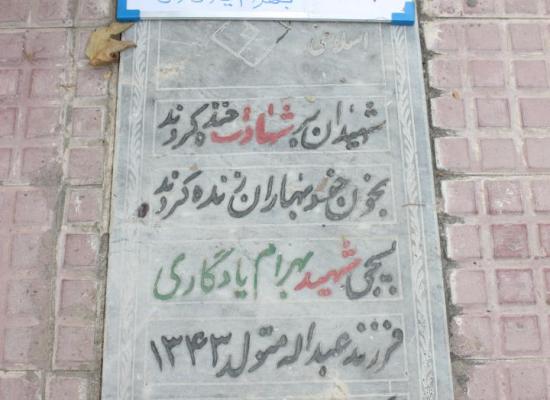 اسلامی
شهیدان بر شهادت خنده کردند
بخون خود بهاران زنده کردند
بسیجی شهید بهرام یادگاری
فرزند عبداله متولد ۱۳۴۳